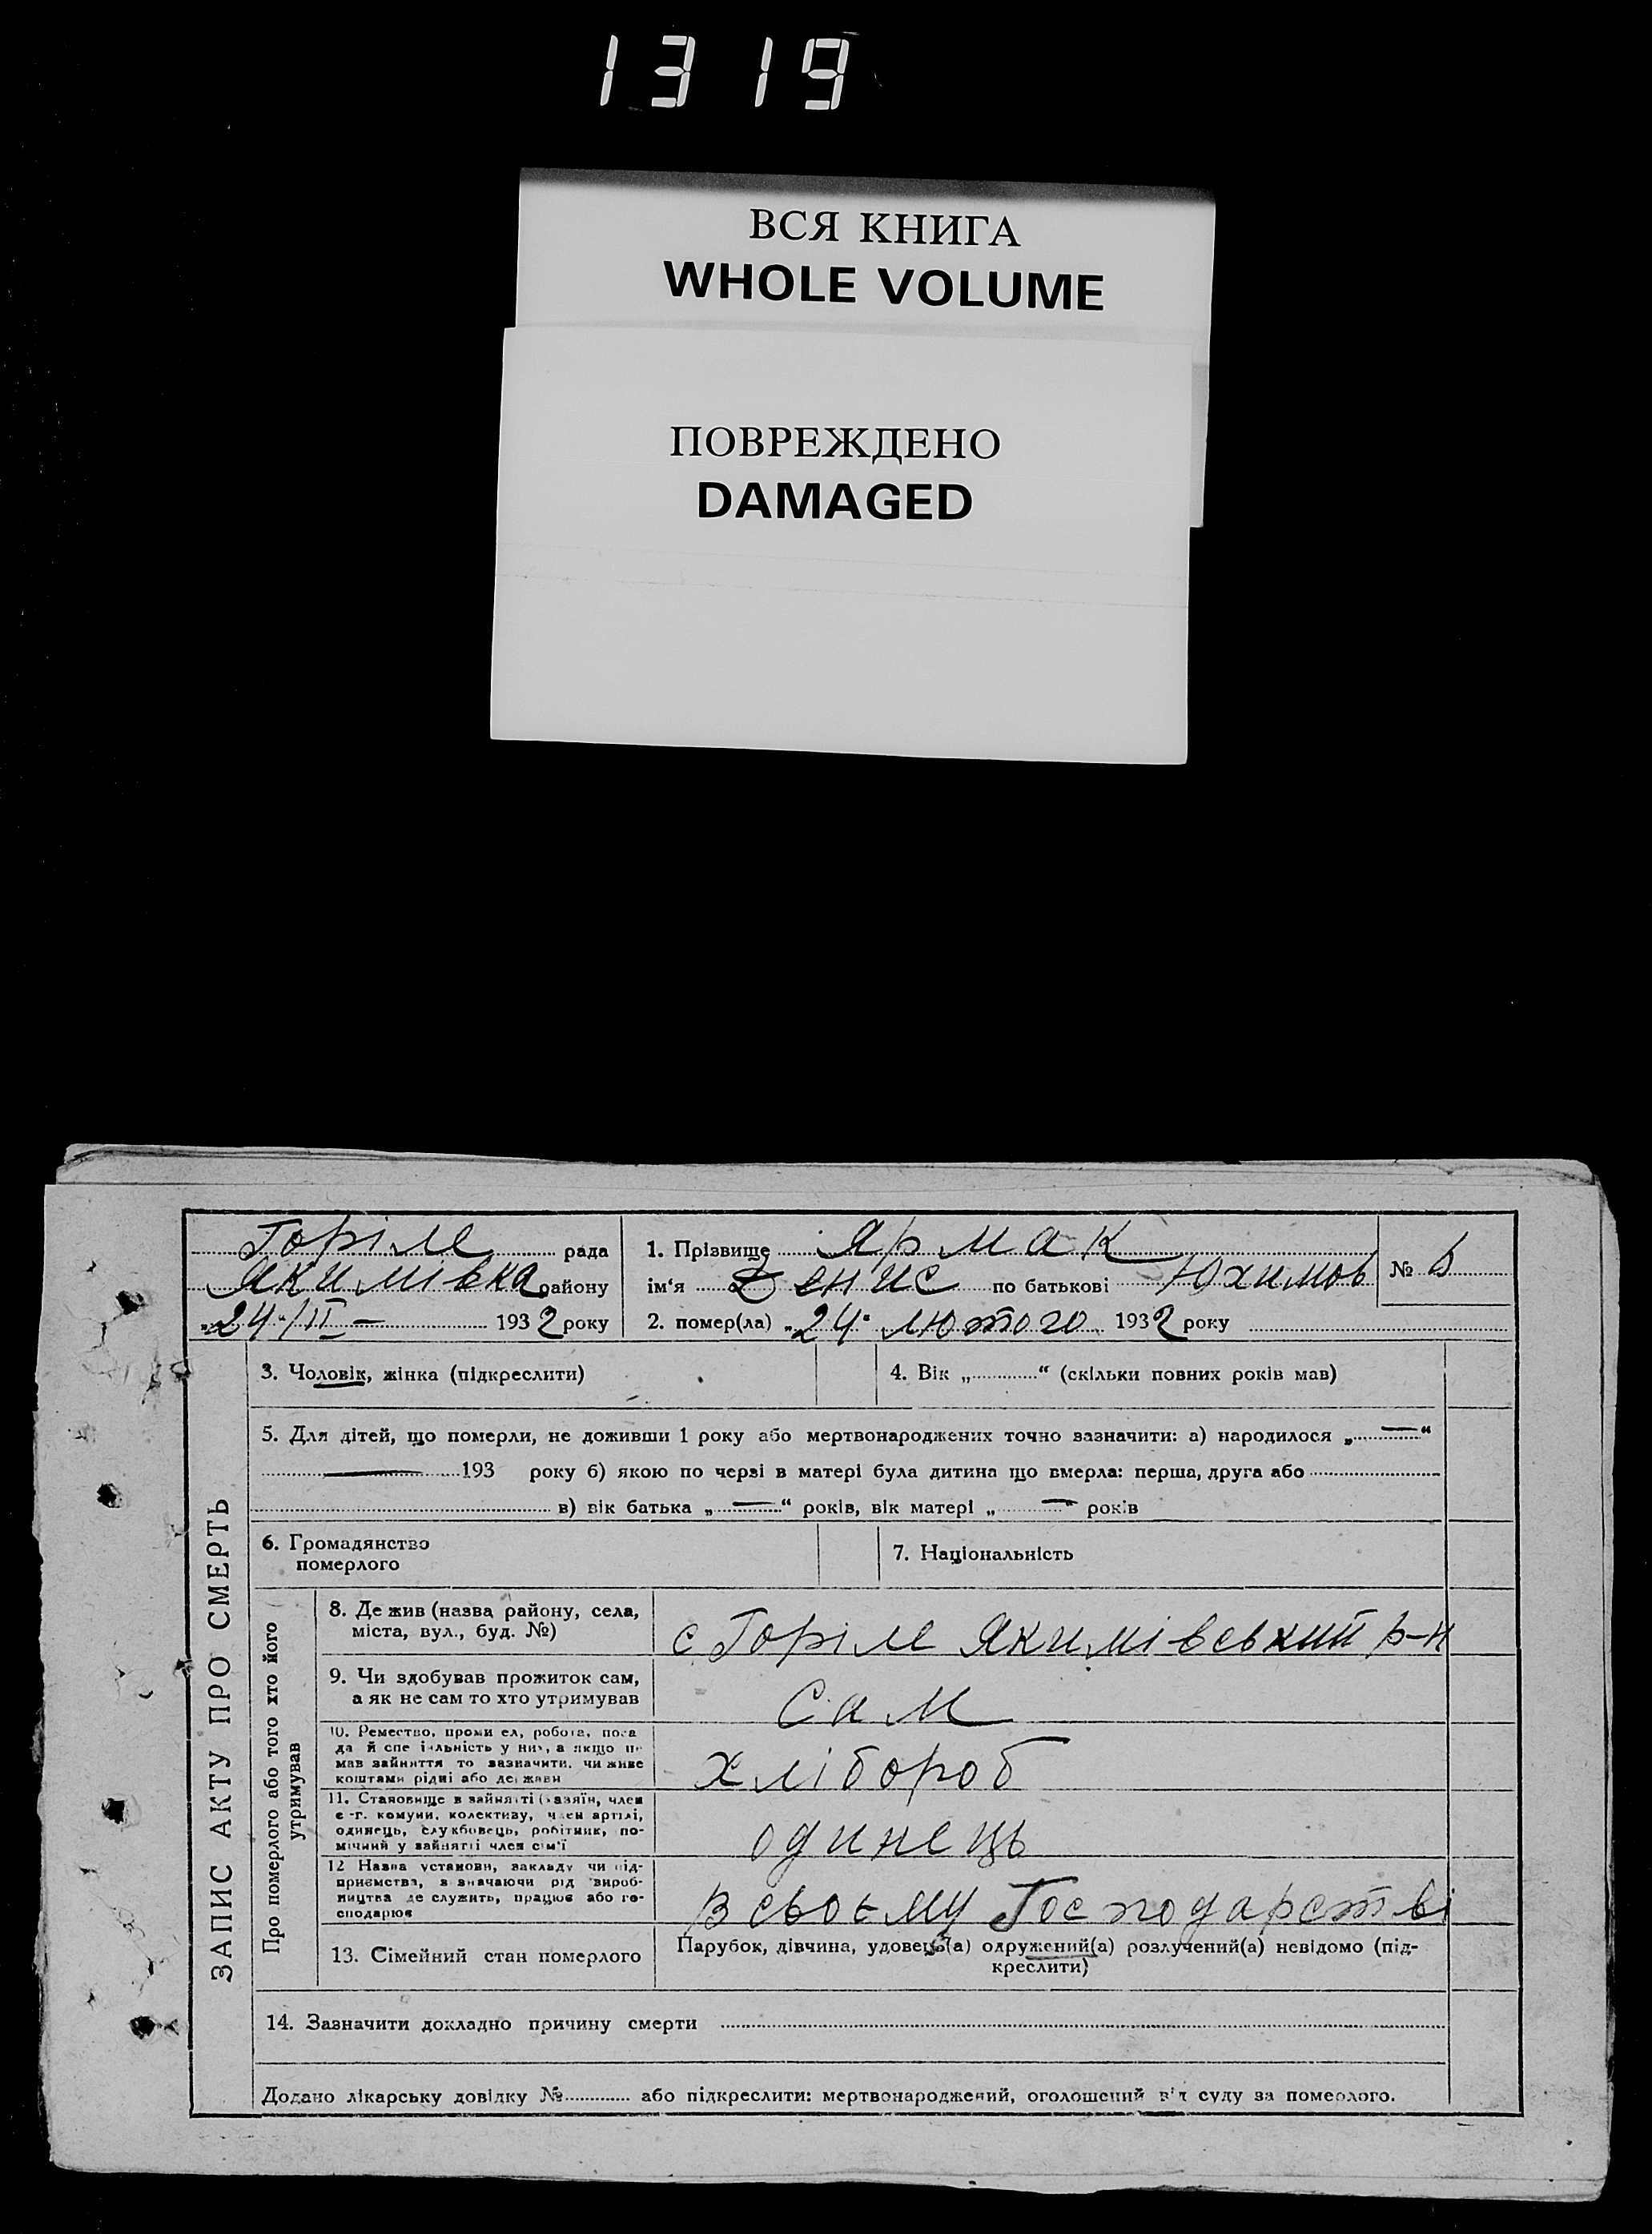 1319
ВСЯ КНИГА
WHOLE VOLUME
ПОВРЕЖДЕНО
DAMAGED
Горіле рада
Якимівка району
„24./II – 1932 року
1. Прізвище Ярмак
ім‘я Денис по батькові Юхимов
2. помер(ла) „24“ лютого 1932 року
№
ЗАПИС АКТУ ПРО СМЕРТЬ
3. Чоловік, жінка (підкреслити)
4. Вік „ “ (скільки повних років мав)
5. Для дітей, що померли, не доживши 1 року або мертвонароджених точно зазначити: а) народилося „ — “
— 193 року б) якою по черзі в матері була дитина що вмерла: перша, друга або
в) вік батька „ — “ років, вік матері „ — “ років
6. Громадянство
померлого
7. Національність
Про померлого або того хто його
утримував
8. Де жив (назва району, села,
міста, вул., буд. №)
с Горіле Якимівський р-н
9. Чи здобував прожиток сам,
а як не сам то хто утримував
Сам
10. Ремество, промисел, робота, поса
да й спеціальність у них, а якщо не
мав зайняття то зазначити, чи живе
коштами рідні або держави
хлібороб
11. Становище в зайнятті (хазяїн, член
с-г. комуни, колективу, член артілі,
одинець, службовець, робітник, по-
мічний у зайнятті член сім‘ї
одинець
12 Назва установи, закладу чи під-
приємства, зазначаючи рід вироб-
ництва де служить, працює або го-
сподарює
в своєму Господарстві
13. Сімейний стан померлого
Парубок, дівчина, удовець(а) одружений(а) розлучений(а) невідомо (під-
креслити)
14. Зазначити докладно причину смерти
Додано лікарську довідку № або підкреслити: мертвонароджений, оголошений від суду за померлого.